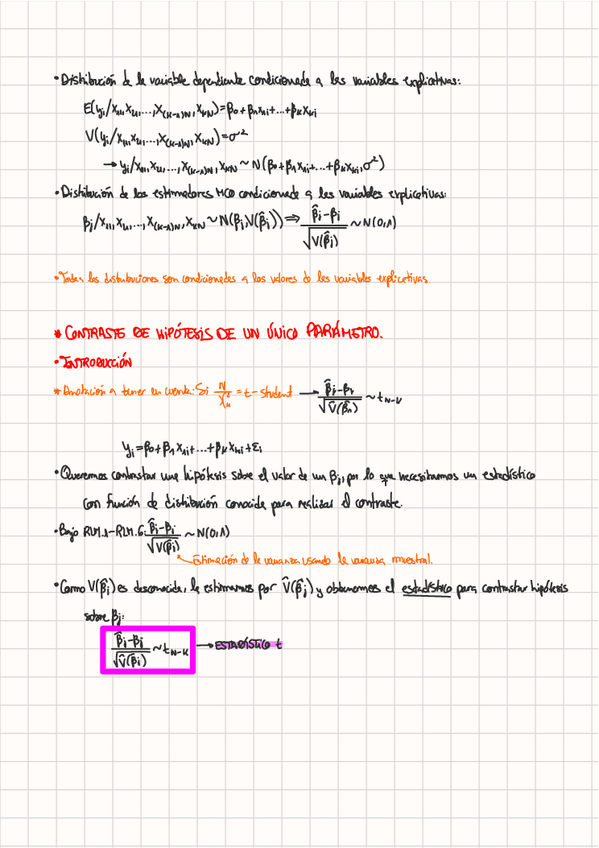 • Distribución de la variable dependiente condicionada a las variables explicativas:
E(yᵢ/x₁₁,x₂₁,...,x₍ₖ₋₁₎N,xₖN)=β₀+β₁x₁ᵢ+...+βₖxₖᵢ
V(yᵢ/x₁₁,x₂₁,...,x₍ₖ₋₁₎N,xₖN)=σ²
→ yᵢ/x₁₁,x₂₁,...,x₍ₖ₋₁₎N,xₖN ~ N(β₀+β₁x₁ᵢ+...+βₖxₖᵢ,σ²)
• Distribución de los estimadores MCO condicionada a las variables explicativas:
β̂ⱼ/x₁₁,x₂₁,...,x₍ₖ₋₁₎N,xₖN ~ N(βⱼ,V(β̂ⱼ)) ⇒ (β̂ⱼ-βⱼ)/√V(β̂ⱼ) ~ N(0,1)
• Todas las distribuciones son condicionadas a los valores de las variables explicativas.
* CONTRASTE DE HIPÓTESIS DE UN ÚNICO PARÁMETRO.
• INTRODUCCIÓN
* Anotación a tener en cuenta: Si = t-student → ~ t N-K
yᵢ=β₀+β₁x₁ᵢ+...+βₖxₖᵢ+εᵢ
• Queremos contrastar una hipótesis sobre el valor de un βⱼ, por lo que necesitamos un estadístico
con función de distribución conocida para realizar el contraste.
• Bajo RLM.1-RLM.6: (β̂ⱼ-βⱼ)/√V(β̂ⱼ) ~ N(0,1)
Estimación de la varianza usando la varianza muestral.
• Como V(β̂ⱼ) es desconocida, la estimamos por V̂(β̂ⱼ) y obtenemos el estadístico para contrastar hipótesis
sobre βⱼ:
(β̂ⱼ-βⱼ)/√V̂(β̂ⱼ) ~ t N-K → ESTADÍSTICO t